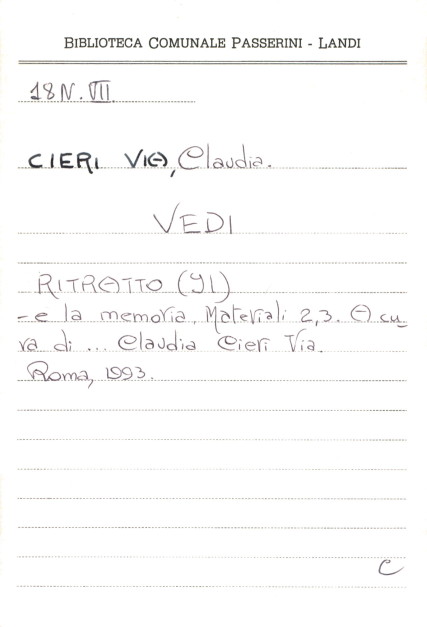 BIBLIOTECA COMUNALE PASSERINI - LANDI
18 N. VII.
CIERI VIA, Claudia.
VEDI
RITRATTO (Il)
- e la memoria. Materiali 2,3. A cu-
ra di ... Claudia Cieri Via.
Roma, 1993.
C